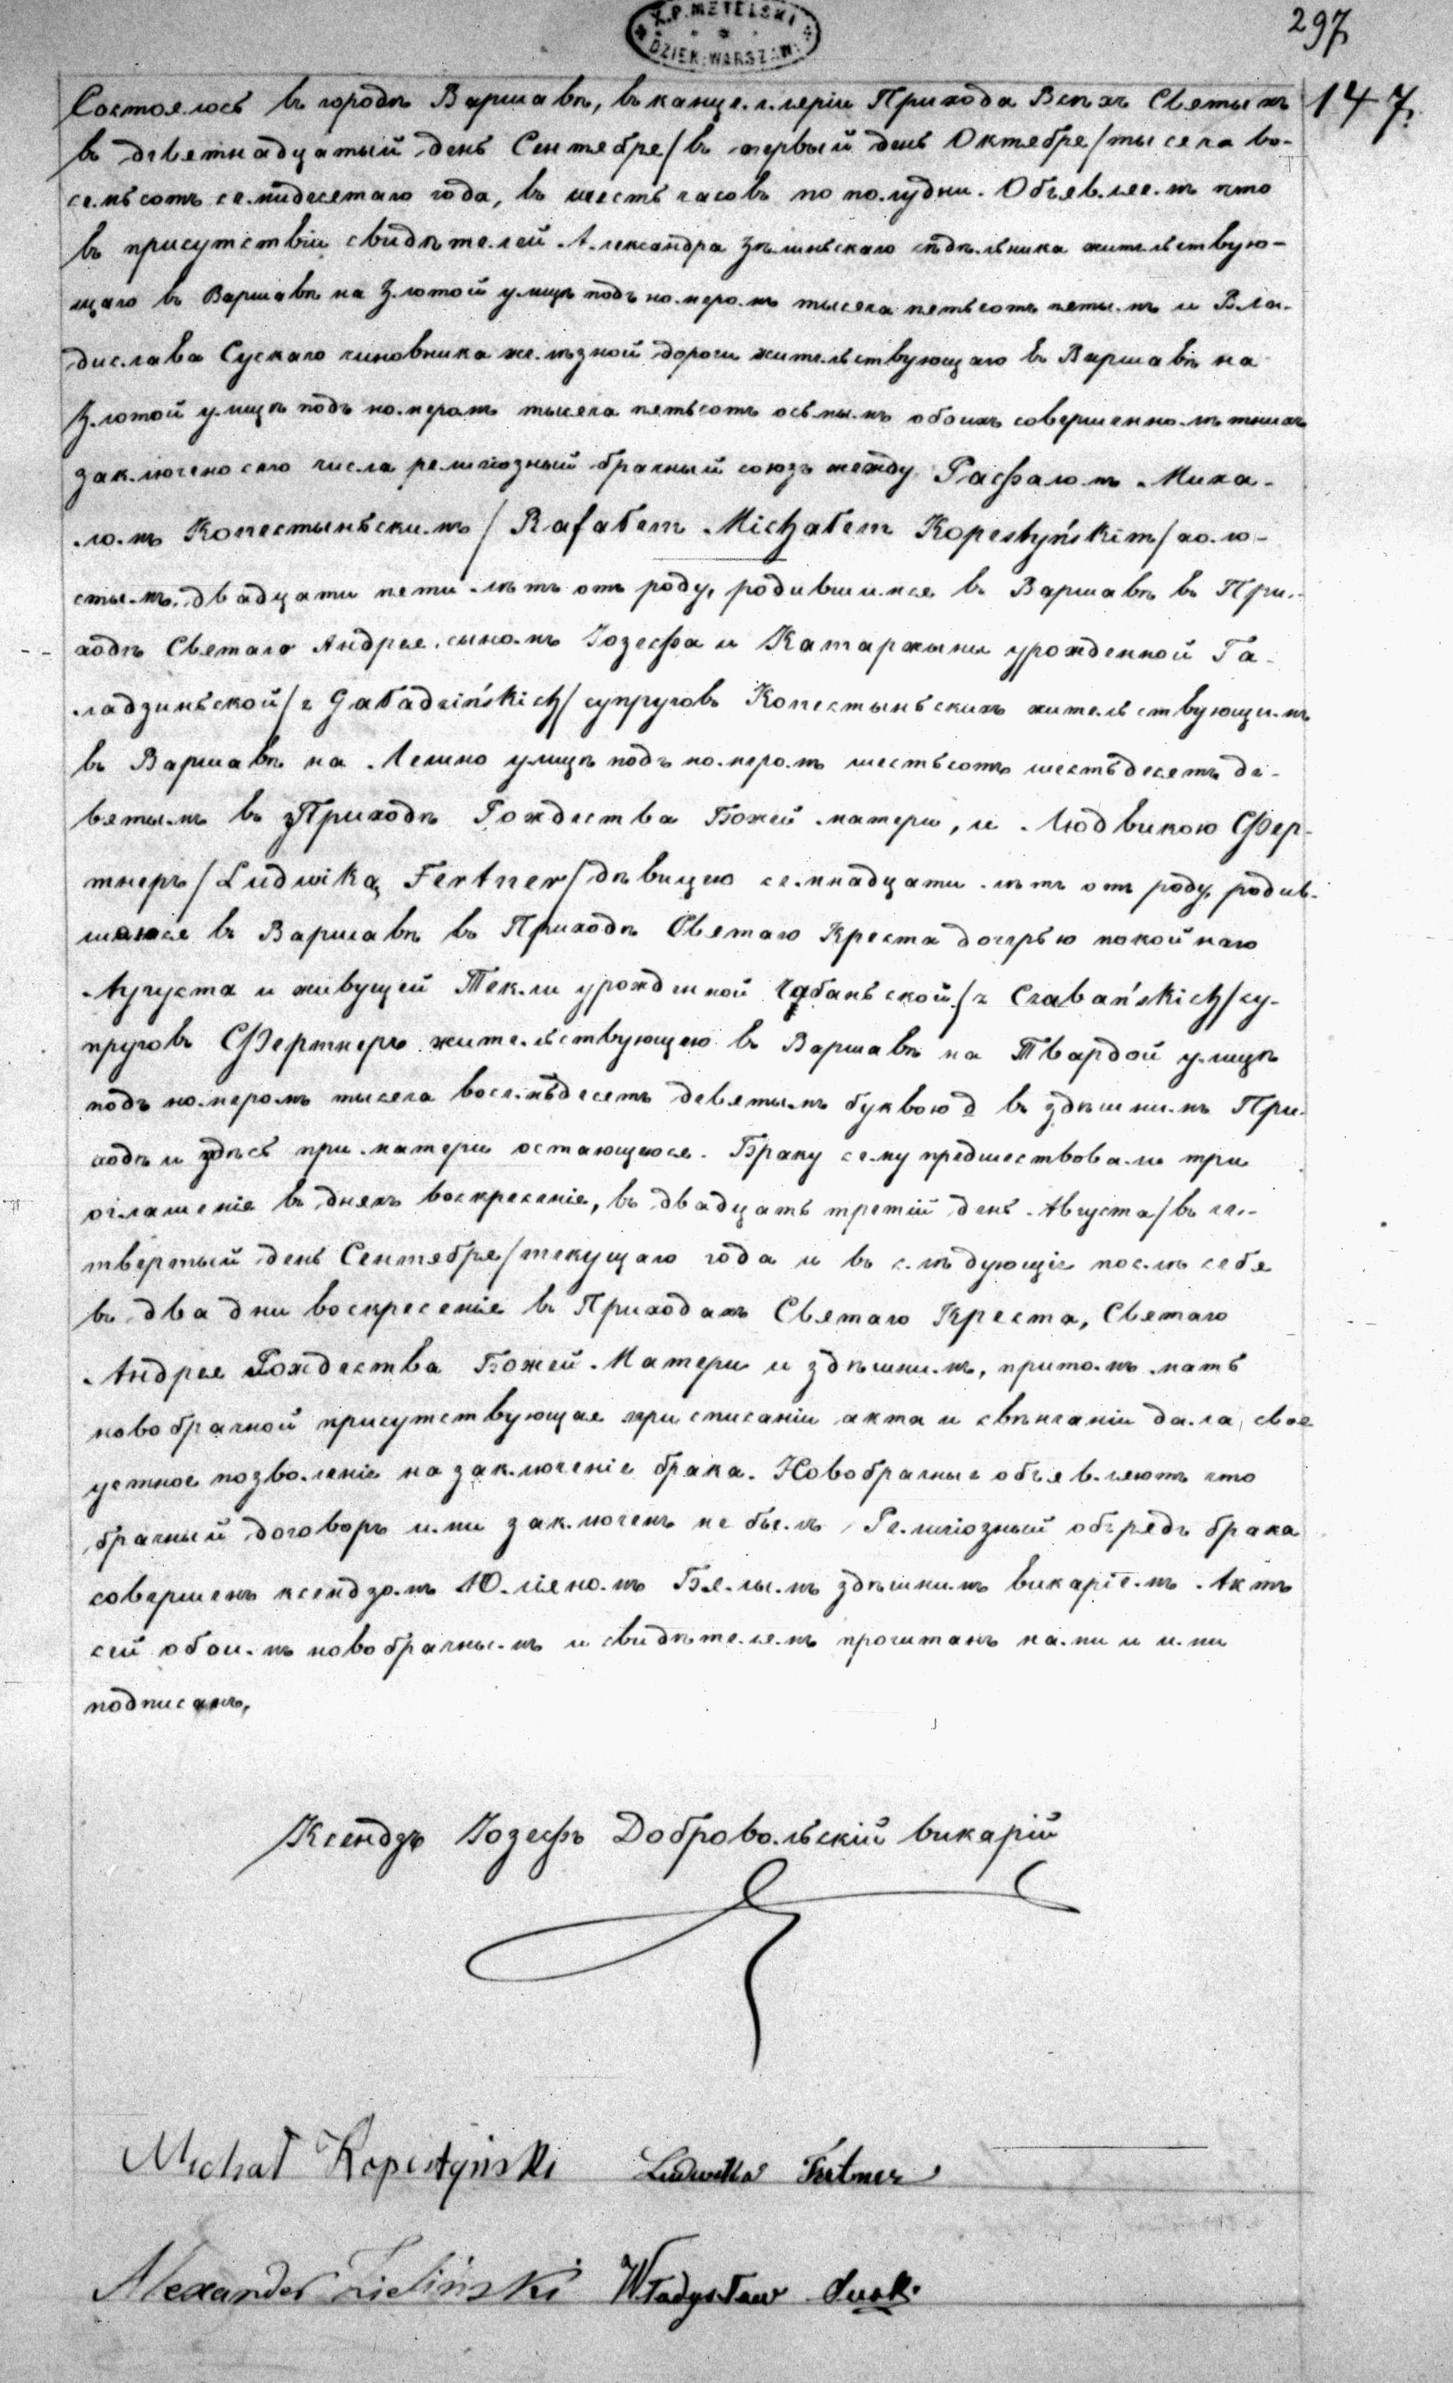 X.P. METELSKI
DZIEK. WARSZAW.
297
147.
Состоялось въ городѣ Варшавѣ, въ канцеллеріи Прихода Всѣхъ Святыхъ
въ девятнадцатый день Сентября/въ первый день Октября/тысяча во-
семьсотъ семидесятаго года, въ шесть часовъ по полудни. Объявляемъ что
въ присутствіи свидѣтелей Александра Зѣлиньскаго сѣдѣльника жительствую-
щаго въ Варшавѣ на Злотой улицѣ подъ номеромъ тысяча пятьсотъ пятымъ и Вла-
дислава Сускаго чиновника желѣзной дороги жительствующаго въ Варшавѣ на
Злотой улицѣ подъ номеромъ тысяча пятьсотъ осьмымъ обоихъ совершеннолѣтнихъ
заключено сего числа религіозный брачный союзъ между Рафаломъ Миха-
ломъ Копестыньскимъ/Rafałem Michałem Kopestyńskim/холо-
стымъ двадцати пяти лѣтъ отъ роду, родившимся въ Варшавѣ въ При-
ходѣ Святаго Андрея, сыномъ Іозефа и Катаржыны урожденной Га-
ладзиньской/z Gaładzińskich/супруговъ Копестыньскихъ жительствующимъ
въ Варшавѣ на Лешно улицѣ подъ номеромъ шестьсотъ шестьдесятъ де-
вятымъ въ Приходѣ Рождества Божей матери, и Людвикою Фер-
тнеръ/Ludwiką Fertner/дѣвицею семнадцати лѣтъ отъ роду, родив-
шаюся въ Варшавѣ въ Приходѣ Святаго Креста дочерью покойнаго
Августа и живущей Текли урожденной Чабаньской/z Czabańskich/су-
пруговъ Фертнеръ жительствующею въ Варшавѣ на Твардой улицѣ
подъ номеромъ тысяча восемьдесятъ девятымъ буквою д въ здѣшнимъ При-
ходѣ и здѣсь при матери остающеюся. Браку сему предшествовали три
оглашенія въ дняхъ воскресенія, въ двадцать третій день Августа/въ че-
твертый день Сентября/текущаго года и въ слѣдующіе послѣ себя
въ два дни воскресенія въ Приходахъ Святаго Креста, Святаго
Андрея Рождества Божей Матери и здѣшнимъ, притомъ мать
новобрачной присутствующая при списаніи акта и свѣнчаніи дала свое
устное позволеніе на заключеніе брака. Новобрачные объявляютъ что
брачный договоръ ими заключенъ не былъ. Религіозный обрядъ брака
совершенъ ксендзомъ Юліяномъ Бялымъ здѣшнимъ викаріемъ. Актъ
сей обоимъ новобрачнымъ и свидѣтелямъ прочитанъ нами и ими
подписанъ.
Ксендзъ Іозефъ Добровольскій викарій
Michał Kopestyński Ludwika Fertner
Alexander Zieliński Władysław Suski